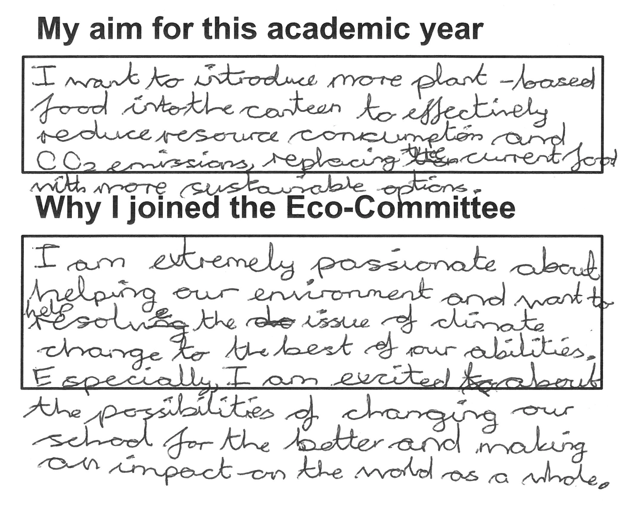 My aim for this academic year
I want to introduce more plant-based
food into the canteen to effectively
reduce resource consumption and
CO2 emissions, replacing the current food
with more sustainable options.
Why I joined the Eco-Committee
I am extremely passionate about
helping our environment and want to
help resolve the issue of climate
change to the best of our abilities.
Especially, I am excited about
the possibilities of changing our
school for the better and making
an impact on the world as a whole.